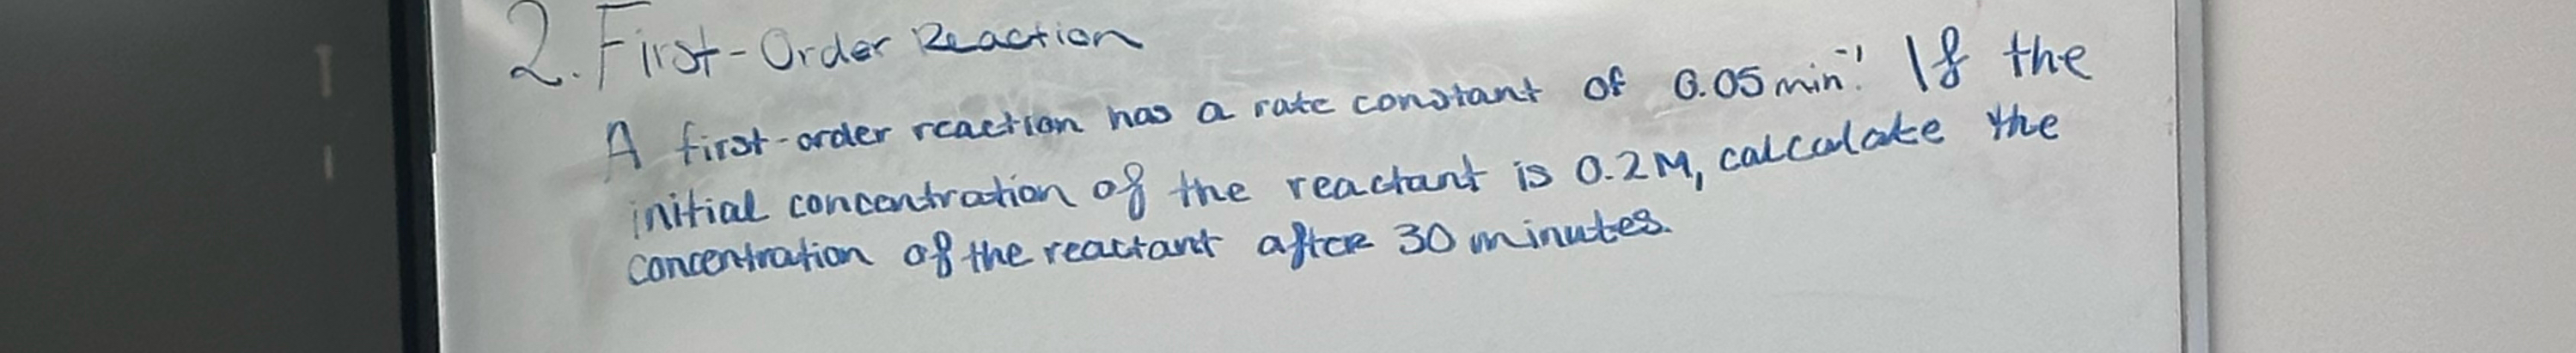 2. First-Order Reaction
A first-order reaction has a rate constant of 0.05 min⁻¹. If the
initial concentration of the reactant is 0.2M, calculate the
concentration of the reactant after 30 minutes.